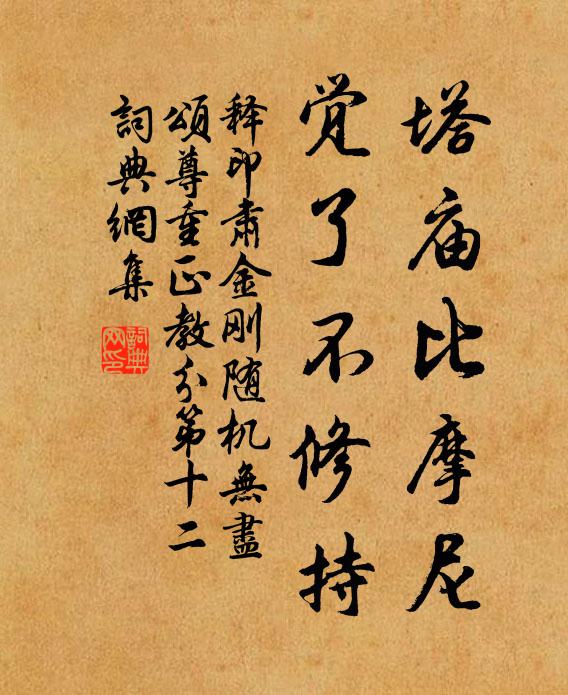 塔庙比摩尼
觉了不修持
释印肃金刚随机無盡
頌尊重正教分第十二
詞典網集
詞典網印